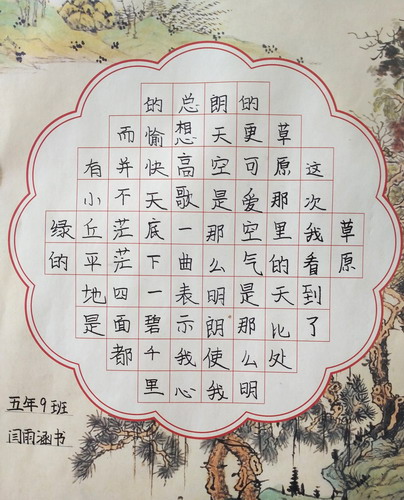 草原
这次我看到了
草原那里的天比处
的更可爱空气是那么明
朗天空是那么明朗使我
总想高歌一曲表示我心
的愉快天底下一碧千里
而并不茫茫四面都
有小丘平地是
绿的
五年9班
闫雨涵书